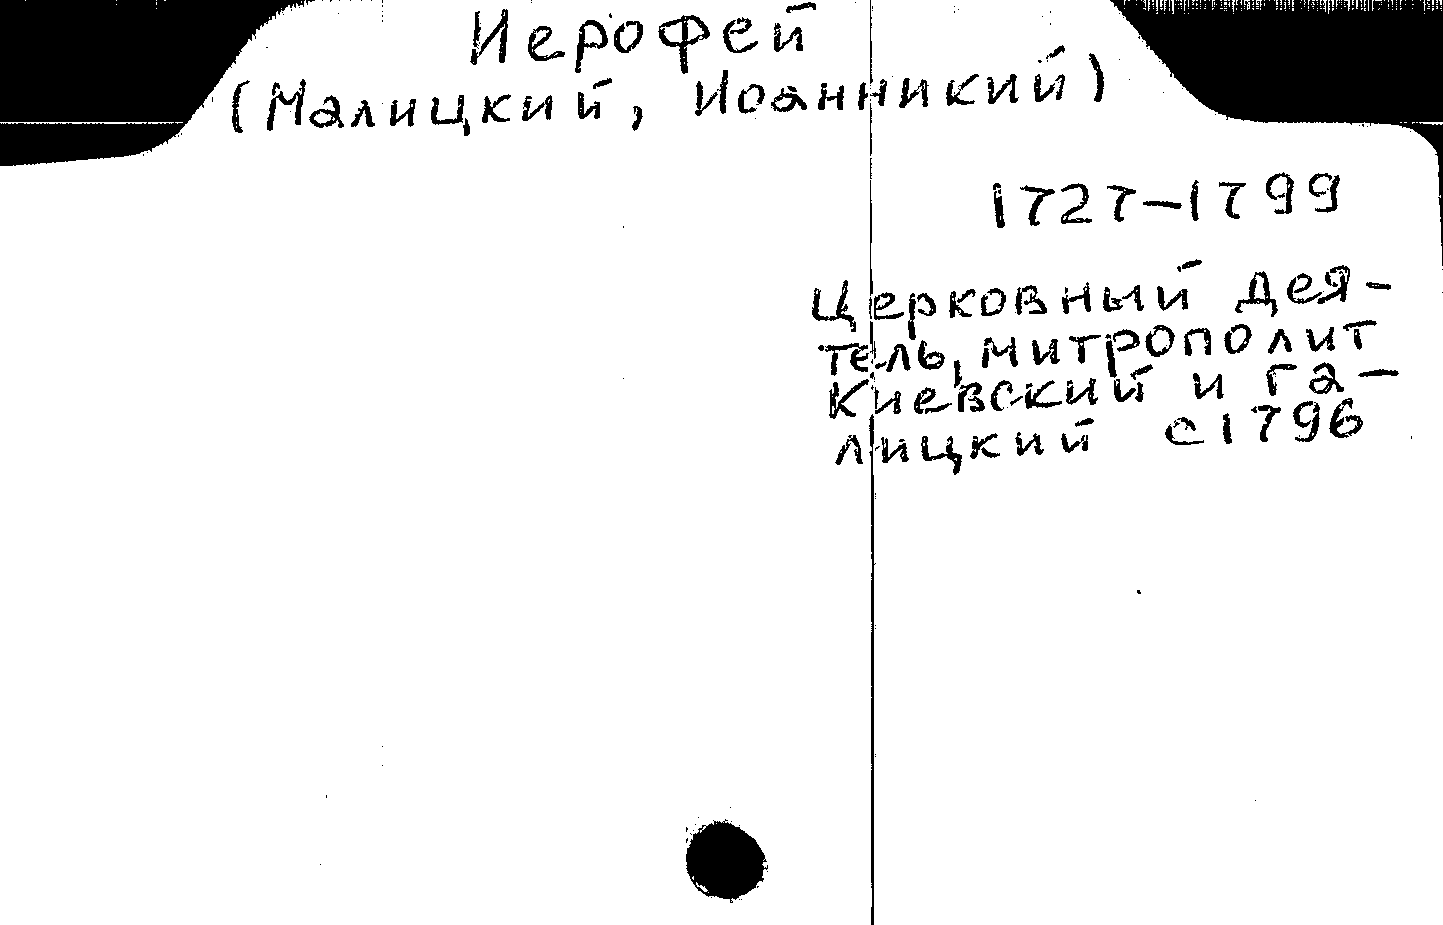 Иерофей
(Малицкий, Иоанникий)
1727-1799
Церковный дея-
тель, митрополит
Киевский и Га-
лицкий с 1796